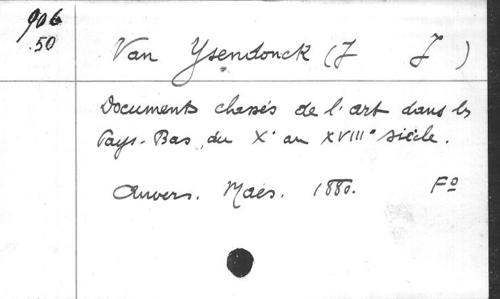 906
.50
Van Ysendonck (J J)
Documents chassés de l'art dans les
Pays-Bas, du X° au XVIII° siècle.
Anvers. Maes. 1880. F°